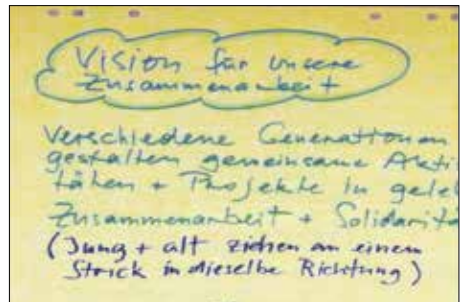 Vision für unsere
Zusammenarbeit
Verschiedene Generationen
gestalten gemeinsame Akti
täten + Projekte in geleb
Zusammenarbeit + Solidaritä
(Jung + alt ziehen an einem
Strick in dieselbe Richtung)